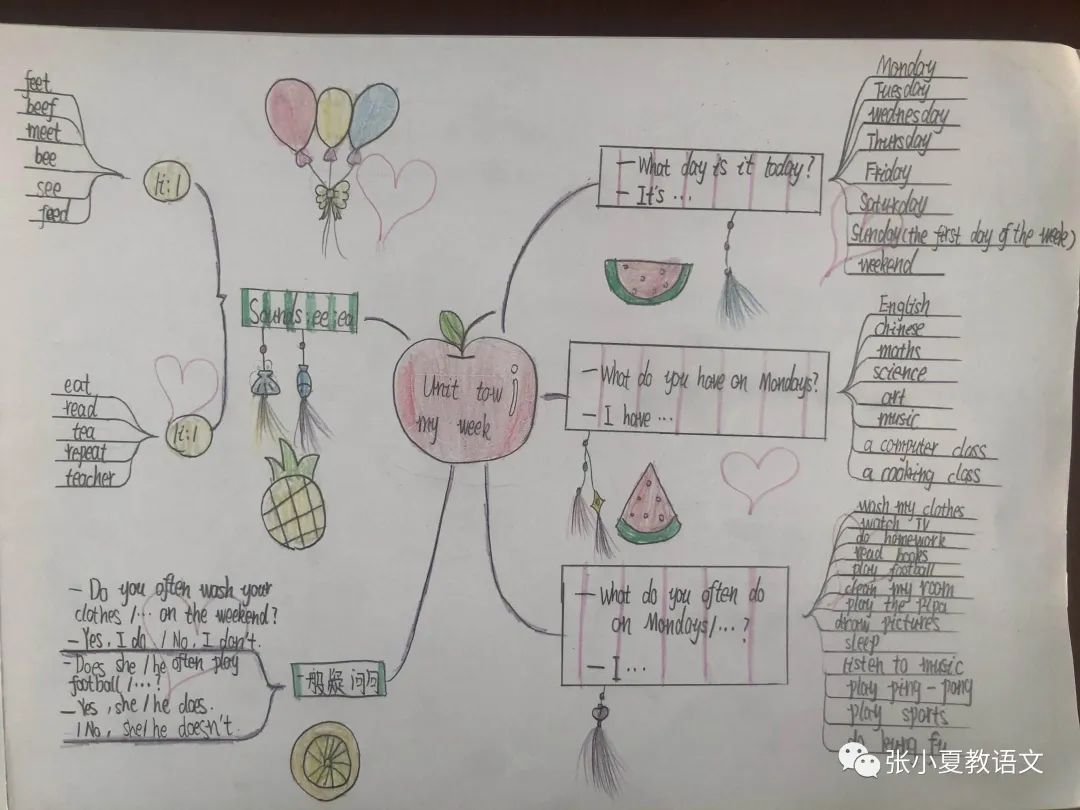 feet
beef
meet
bee
see
feed
/i:/
Sounds: ee; ea
eat
read
tea
repeat
teacher
/i:/
Unit tow
my week
— What day is it today?
— It's ...
Monday
Tuesday
Wednesday
Thursday
Friday
Saturday
Sunday(the first day of the week)
weekend
— What do you have on Mondays?
— I have ...
English
chinese
maths
science
art
music
a computer class
a cooking class
— What do you often do
on Mondays/...?
— I ...
wash my clothes
watch TV
do homework
read books
play football
clean my room
play the pipa
draw pictures
sleep
listen to music
play ping-pong
play sports
do kung fu
— Do you often wash your
clothes /... on the weekend?
— Yes, I do. / No, I don't.
— Does she / he often play
football /...?
— Yes, she / he does.
/ No, she / he doesn't.
一般疑问句
张小夏教语文